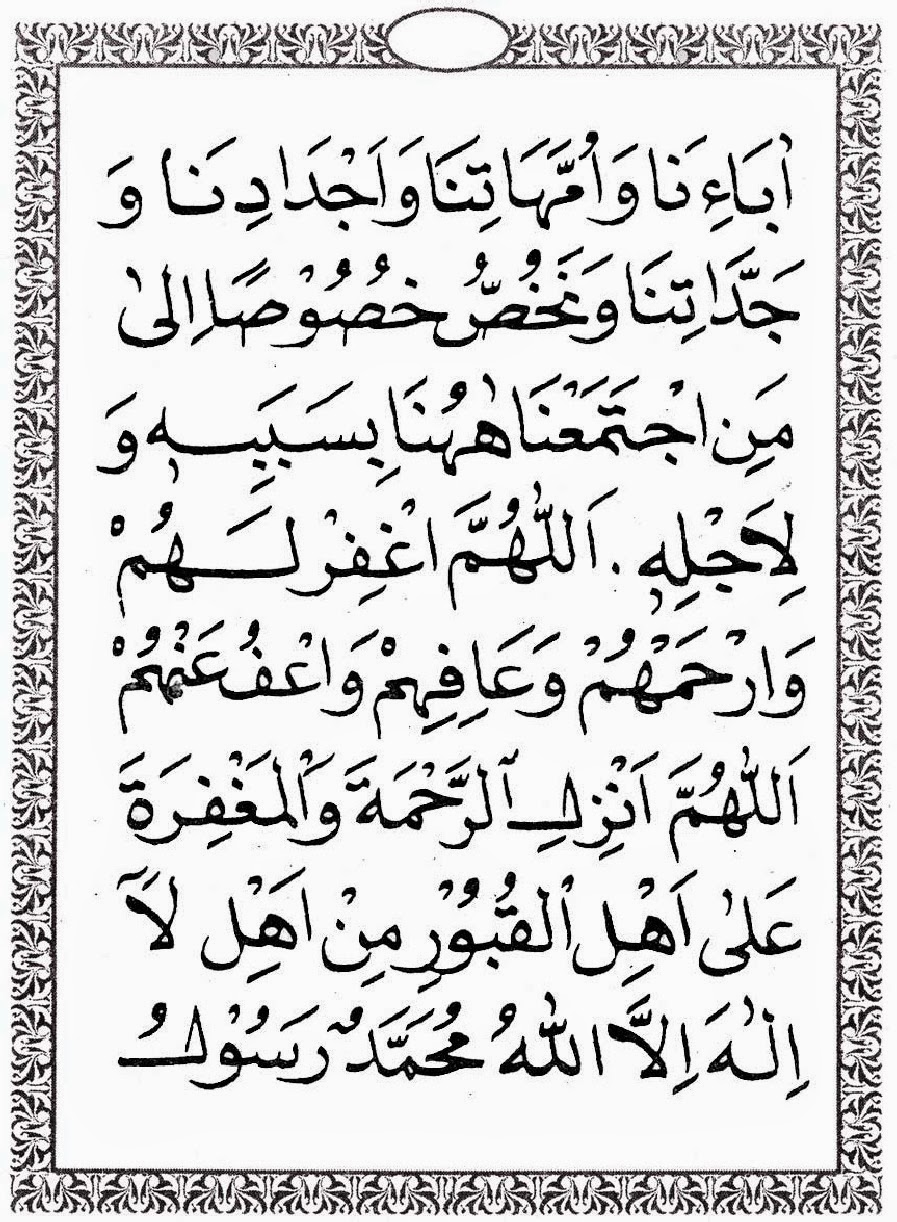 اٰبَاءِنَا وَاُمَّهَاتِنَا وَاَجْدَادِنَا وَ
جَدَّاتِنَا وَنَخُصُّ خُصُوْصًا اِلٰى
مَنِ اجْتَمَعْنَا هٰهُنَا بِسَبَبِهٖ وَ
لِاَجْلِهٖ . اَللّٰهُمَّ اغْفِرْ لَهُمْ
وَارْحَمْهُمْ وَعَافِهِمْ وَاعْفُ عَنْهُمْ
اَللّٰهُمَّ اَنْزِلِ الرَّحْمَةَ وَالْمَغْفِرَةَ
عَلٰى اَهْلِ الْقُبُوْرِ مِنْ اَهْلِ لَآ
اِلٰهَ اِلَّا اللّٰهُ مُحَمَّدٌ رَسُوْلُ